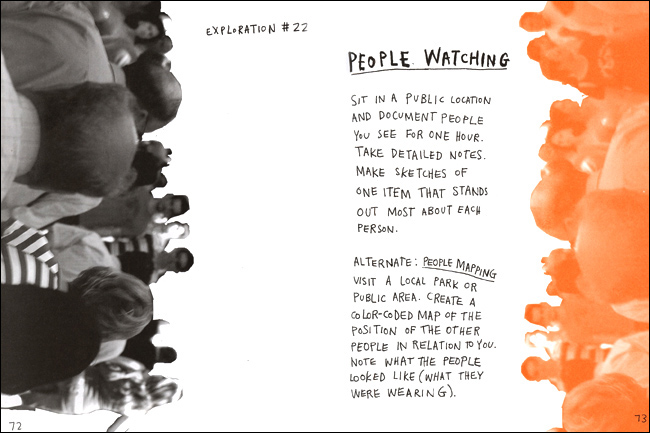 EXPLORATION #22
PEOPLE WATCHING
SIT IN A PUBLIC LOCATION
AND DOCUMENT PEOPLE
YOU SEE FOR ONE HOUR.
TAKE DETAILED NOTES.
MAKE SKETCHES OF
ONE ITEM THAT STANDS
OUT MOST ABOUT EACH
PERSON.
ALTERNATE: PEOPLE MAPPING
VISIT A LOCAL PARK OR
PUBLIC AREA. CREATE A
COLOR-CODED MAP OF THE
POSITION OF THE OTHER
PEOPLE IN RELATION TO YOU.
NOTE WHAT THE PEOPLE
LOOKED LIKE (WHAT THEY
WERE WEARING).
72
73